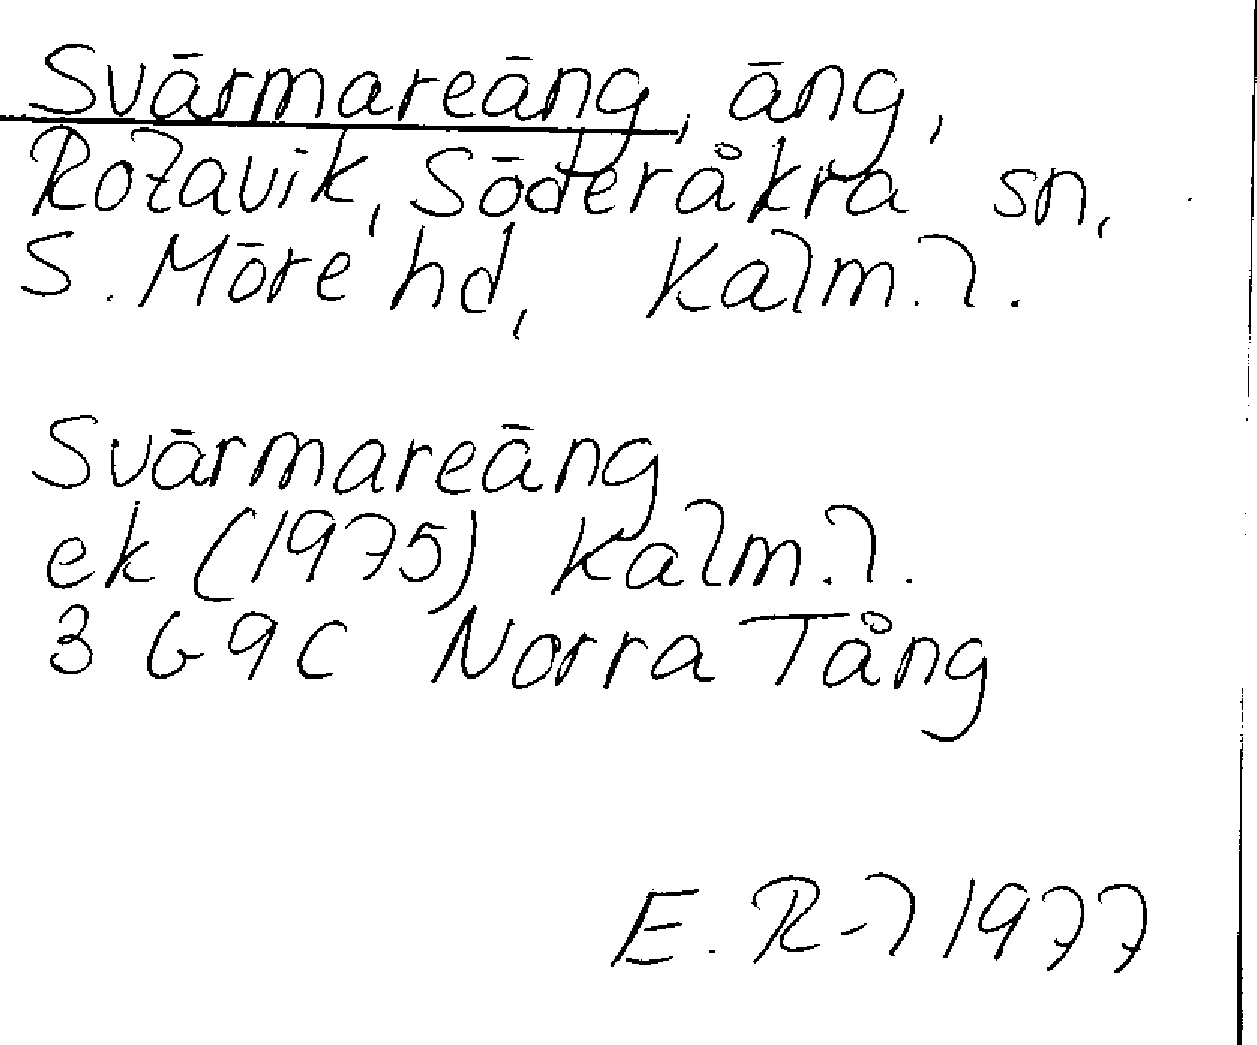 Svärmareäng, äng,
Rozavik, Söderåkra sn,
S. Möre hd, Kalm.l.
Svärmareäng
ek (1975) Kalm.l.
3 G 9 c Norra Tång
E. R-l 1977